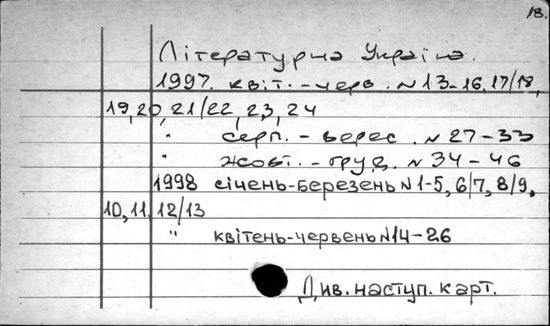 18.
Літературна Україна.
1997. квіт. – черв. N 13–16, 17/18,
19, 20, 21/22, 23, 24
" серп. – верес. N 27–33
" жовт. – груд. N 34–46
1998 січень-березень N 1-5, 6/7, 8/9,
10, 11, 12/13
" квітень-червень N 14–26
Див. наступ. карт.